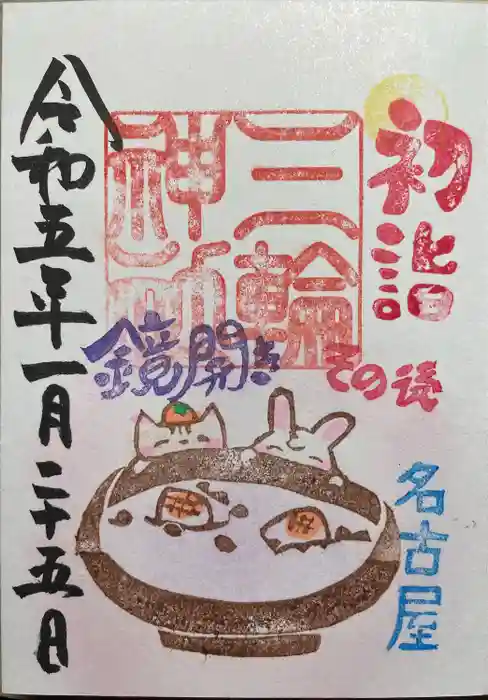 初詣
三輪
神社
鏡開き
その後
名古屋
令和五年一月二十五日